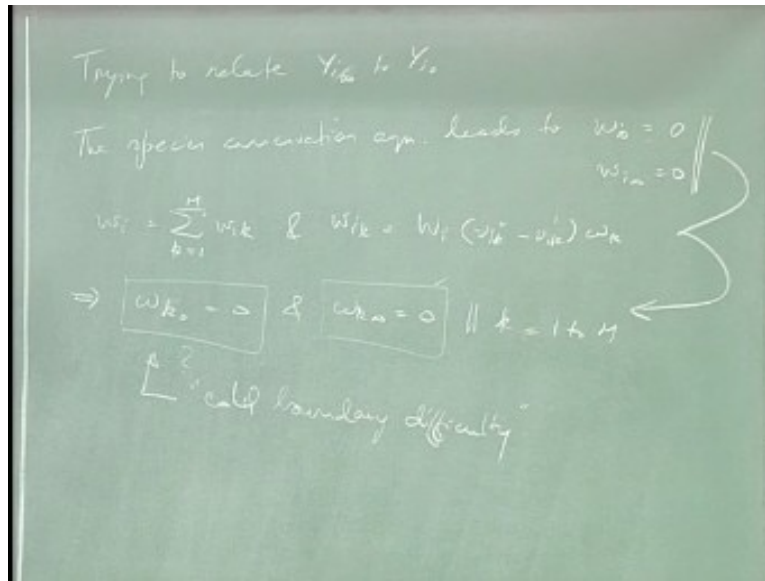 Trying to relate Yi∞ to Yi₀
The species conservation eqn. leads to wi₀ = 0
wi∞ = 0
wi = Σ(k=1 to M) wik & wik = Wi (νik" - νik') ωk
⇒ ωk₀ = 0 & ωk∞ = 0 || k = 1 to M
?
"cold boundary difficulty"